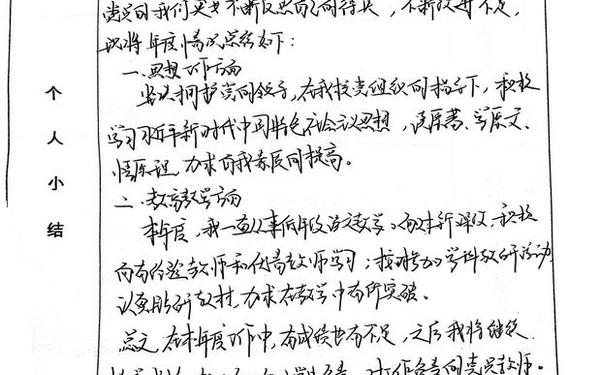 党员的我们更要不断反思自己向待长,不断改善不足,
现将年度情况总结如下:
一.思想工作方面
坚决拥护党的领导,在我校党组织的指导下,积极
学习习近平新时代中国特色社会主义思想,读原著、学原文、
悟原理,力求自我素质的提高。
个人小结
二.教育教学方面
本年度,我一直从事低年级语文教学。面对新课改,积极
向有经验教师和优秀教师学习;积极参加学科教研活动,
认真钻研教材,力求在教学中有所突破。
总之,在本年度工作中,有成绩也有不足,之后我将继续
党员教师。